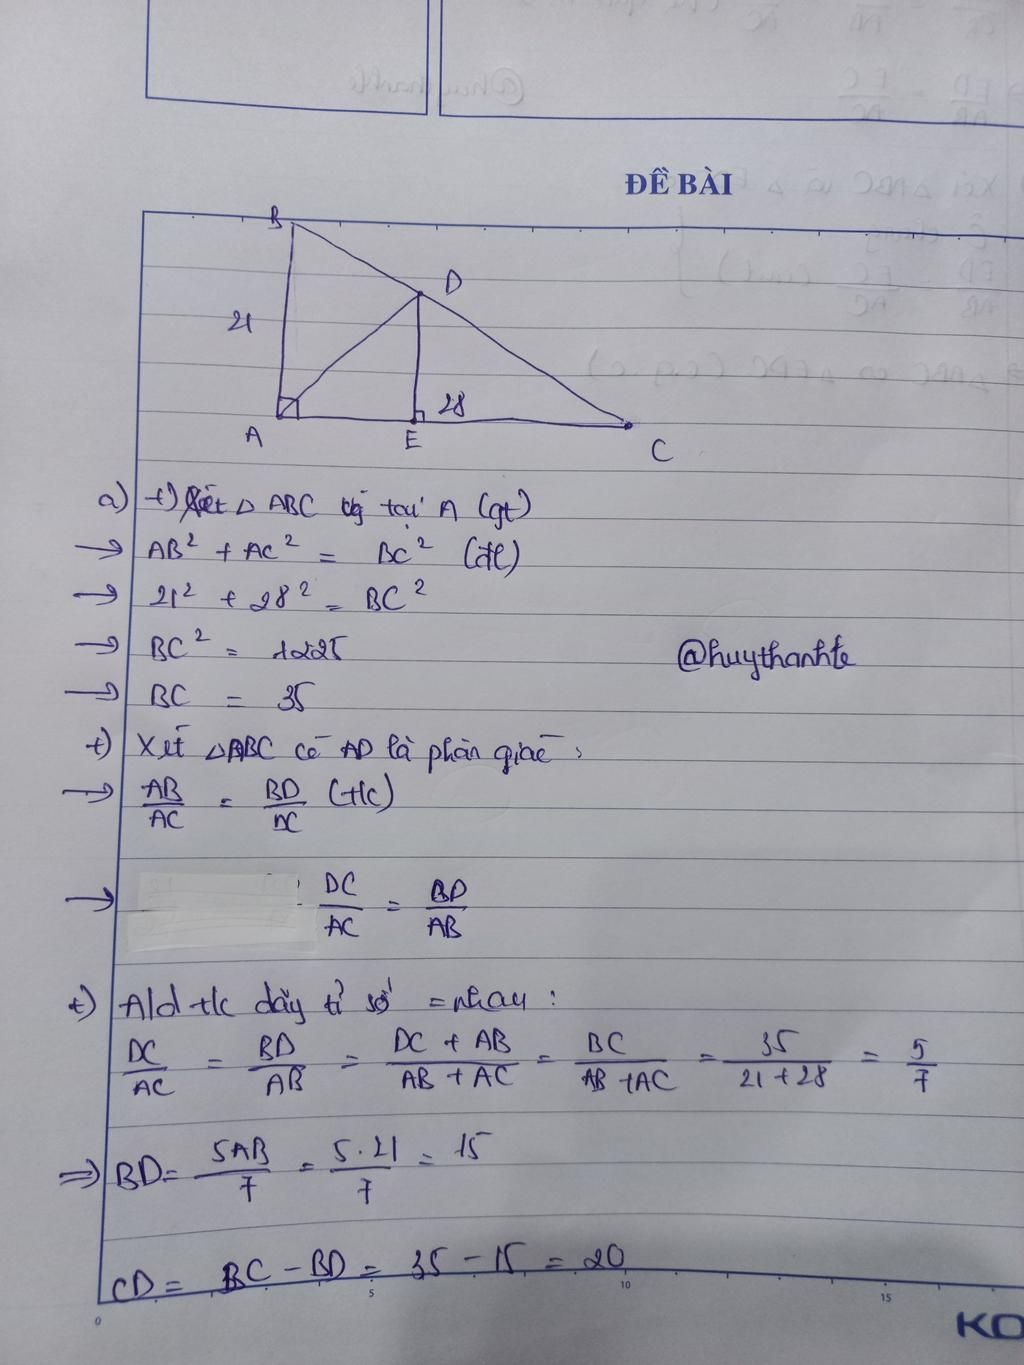 ĐỀ BÀI
B
D
21
28
A
E
C
a) +) Xét △ ABC vg tại A (gt)
→ AB² + AC² = BC² (đl)
→ 21² + 28² = BC²
→ BC² = 1225
@huythanhte
→ BC = 35
+) Xét △ABC có AD là phân giác:
→ AB/AC = BD/DC (t/c)
→ DC/AC = BD/AB
+) A/d t/c dãy tỉ số = nhau:
DC/AC = BD/AB = DC + AB/AB + AC = BC/AB + AC = 35/21 + 28 = 5/7
⇒ BD = 5AB/7 = 5.21/7 = 15
CD = BC - BD = 35 - 15 = 20
0 5 10 15
KO